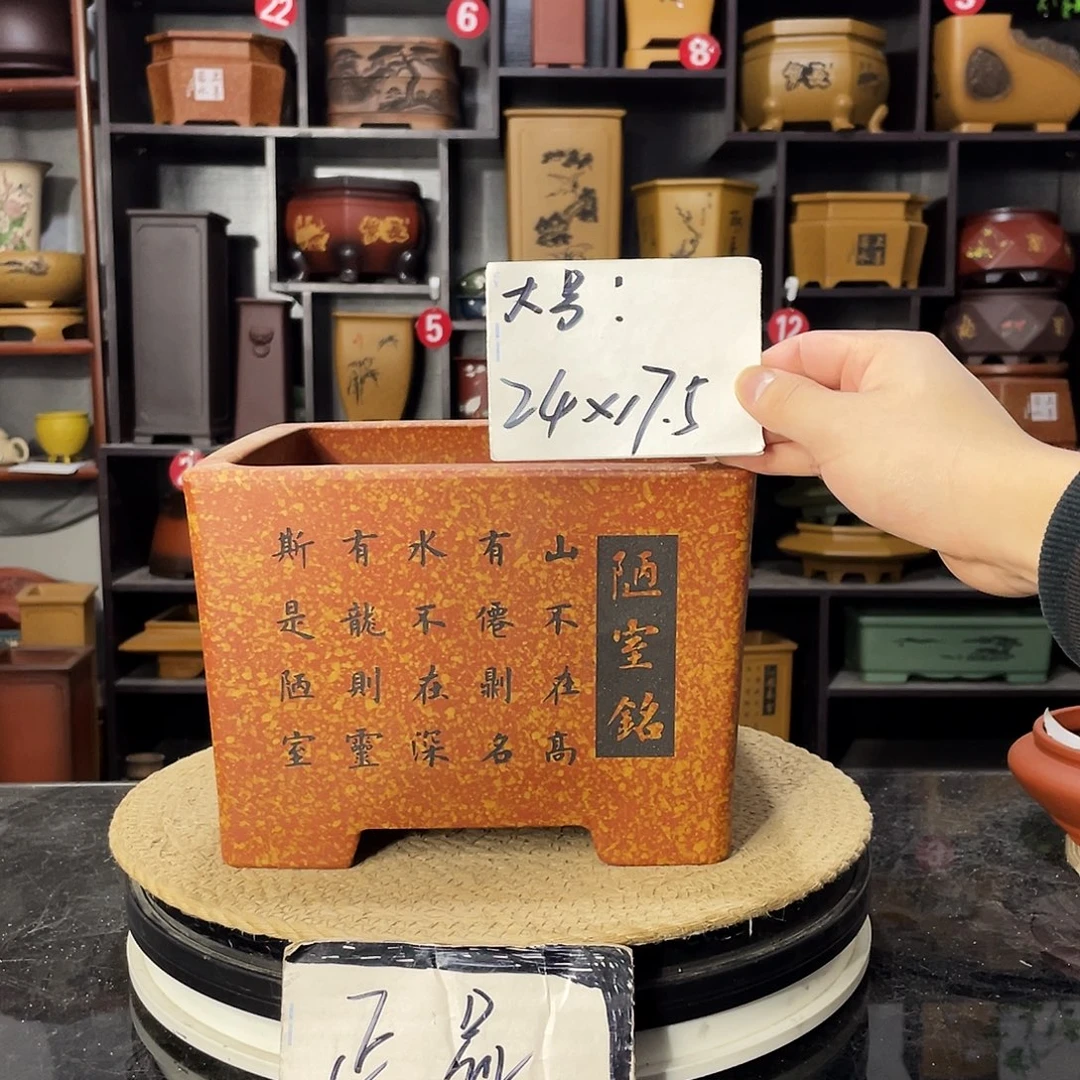 22
6
8
5
12
2
大号:
24×17.5
陋室銘
山不在高
有僊則名
水不在深
有龍則靈
斯是陋室